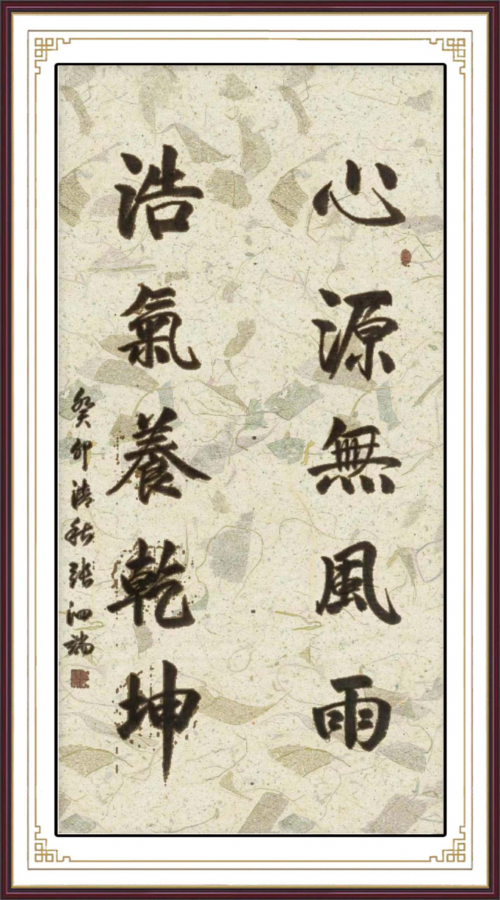 心源無風雨
浩氣養乾坤
癸卯清秋張泗端